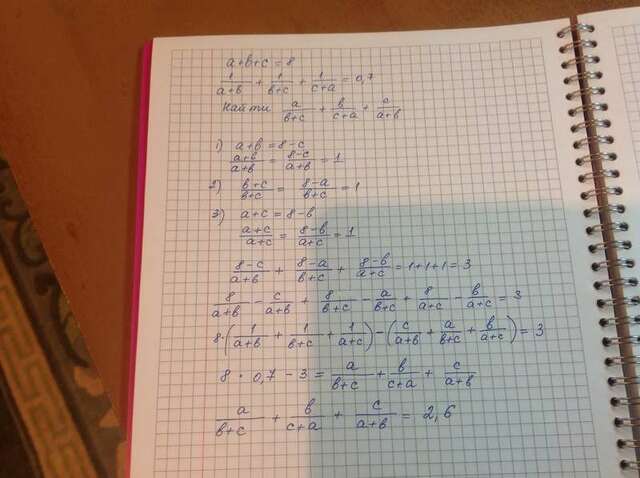 a+b+c=8
1/(a+b) + 1/(b+c) + 1/(c+a) = 0,7
Найти a/(b+c) + b/(c+a) + c/(a+b)
1) a+b=8-c
(a+b)/(a+b) = (8-c)/(a+b) = 1
2) (b+c)/(b+c) = (8-a)/(b+c) = 1
3) a+c=8-b
(a+c)/(a+c) = (8-b)/(a+c) = 1
(8-c)/(a+b) + (8-a)/(b+c) + (8-b)/(a+c) = 1+1+1=3
8/(a+b) - c/(a+b) + 8/(b+c) - a/(b+c) + 8/(a+c) - b/(a+c) = 3
8·(1/(a+b) + 1/(b+c) + 1/(a+c)) - (c/(a+b) + a/(b+c) + b/(a+c)) = 3
8 · 0,7 - 3 = a/(b+c) + b/(c+a) + c/(a+b)
a/(b+c) + b/(c+a) + c/(a+b) = 2,6